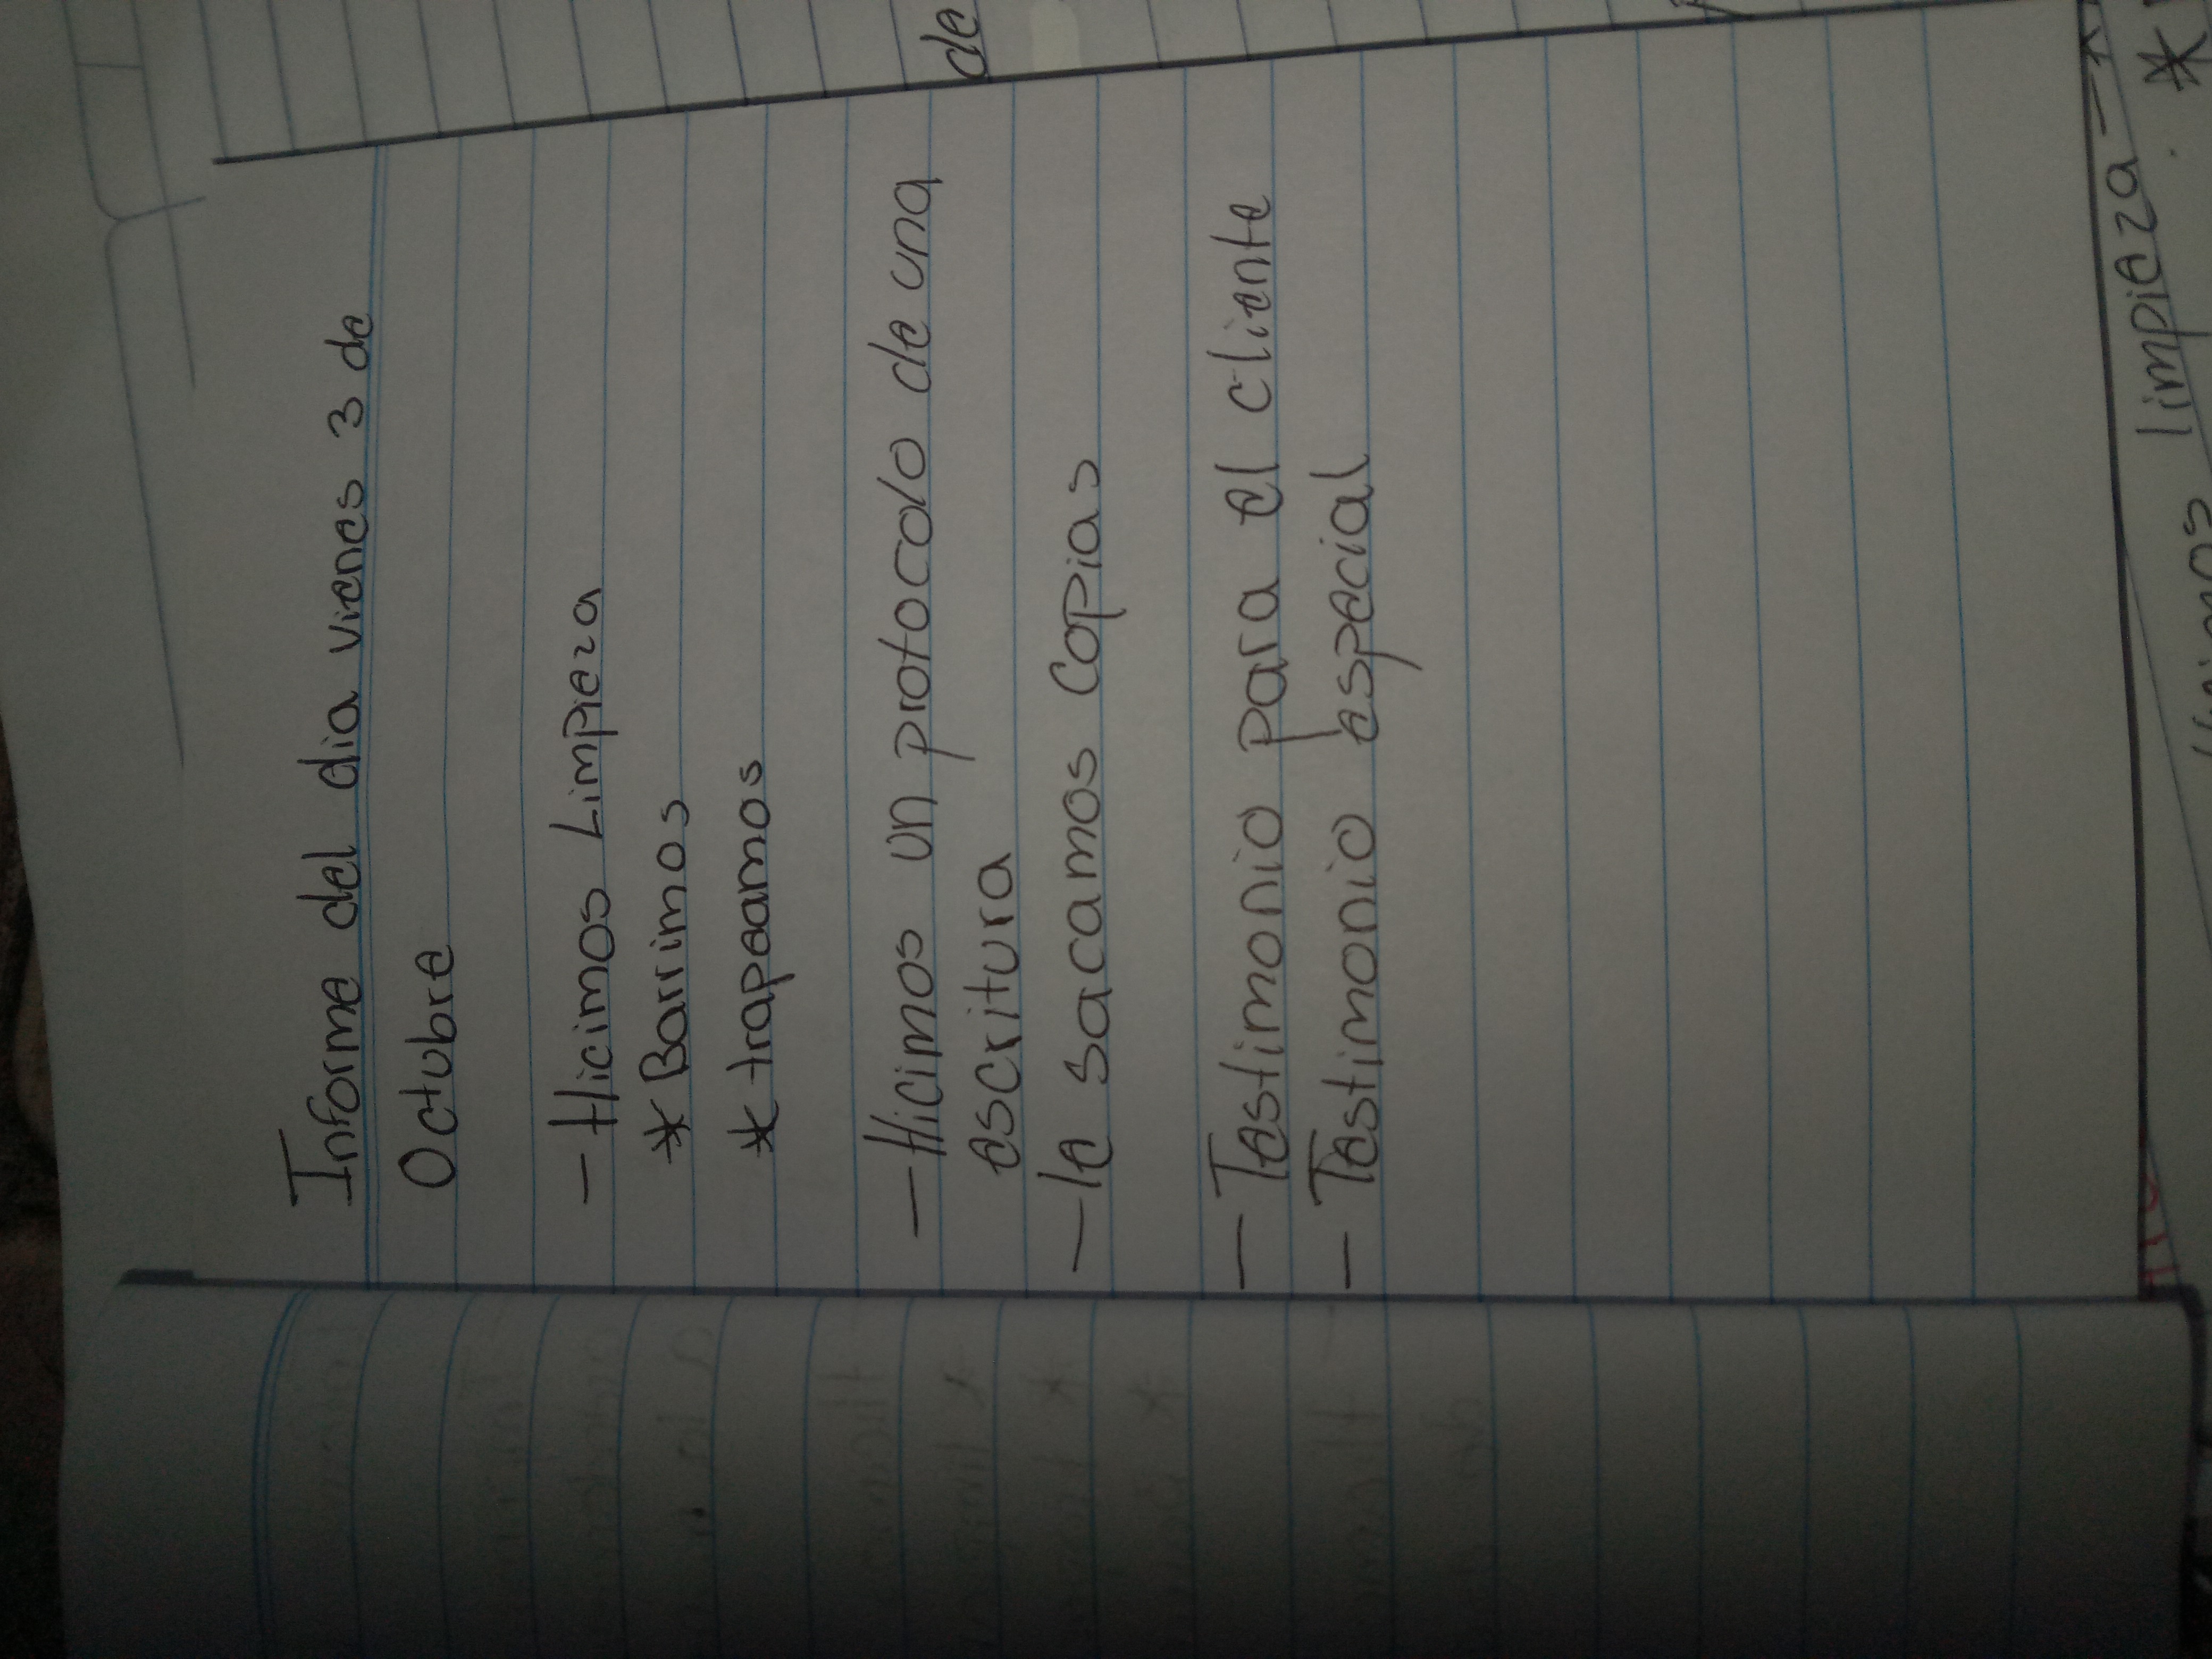 Informe del dia vienes 3 de
Octubre
- Hicimos Limpieza
* Barrimos
* trapeamos
- Hicimos un protocolo de una
escritura
- le sacamos copias
- Testimonio para el cliente
- Testimonio especial
de
limpieza -
*